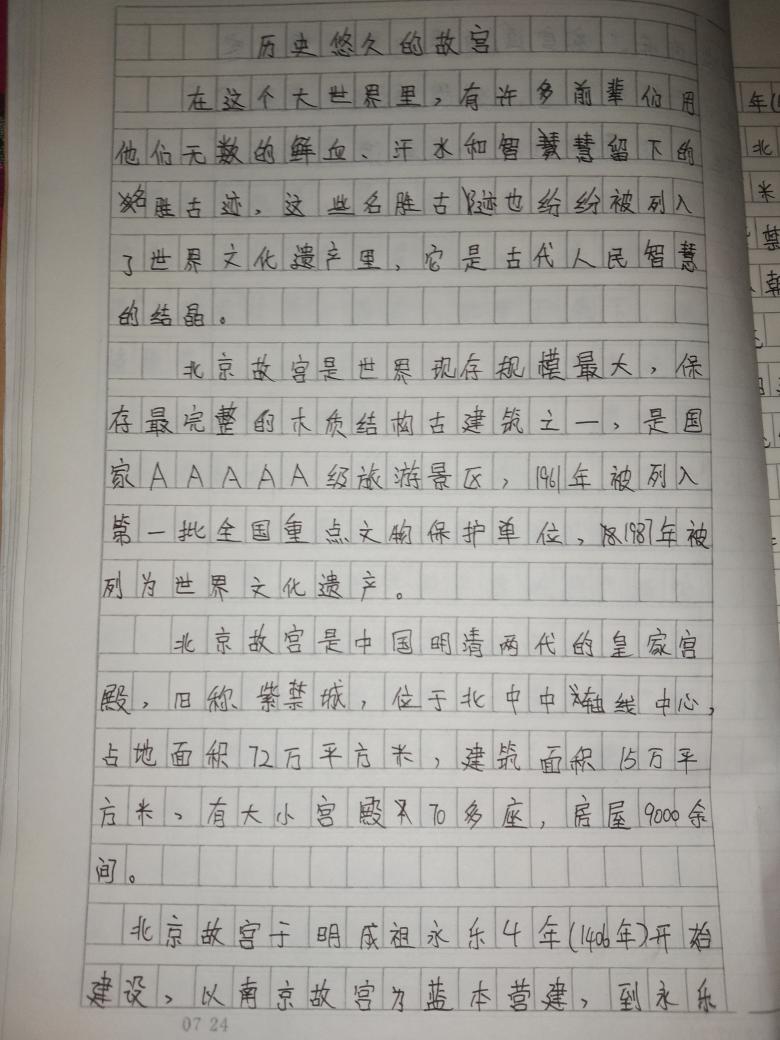 历史悠久的故宫
在这个大世界里，有许多前辈们用
他们无数的鲜血、汗水和智慧留下的
名胜古迹，这些名胜古迹也纷纷被列入
了世界文化遗产里，它是古代人民智慧
的结晶。
北京故宫是世界现存规模最大，保
存最完整的木质结构古建筑之一，是国
家AAAAA级旅游景区，1961年被列入
第一批全国重点文物保护单位，1987年被
列为世界文化遗产。
北京故宫是中国明清两代的皇家宫
殿，旧称紫禁城，位于北中中轴线中心，
占地面积72万平方米，建筑面积15万平
方米，有大小宫殿70多座，房屋9000余
间。
北京故宫于明成祖永乐4年(1406年)开始
建设，以南京故宫为蓝本营建，到永乐
07 24
年(1
北
米
禁
朝